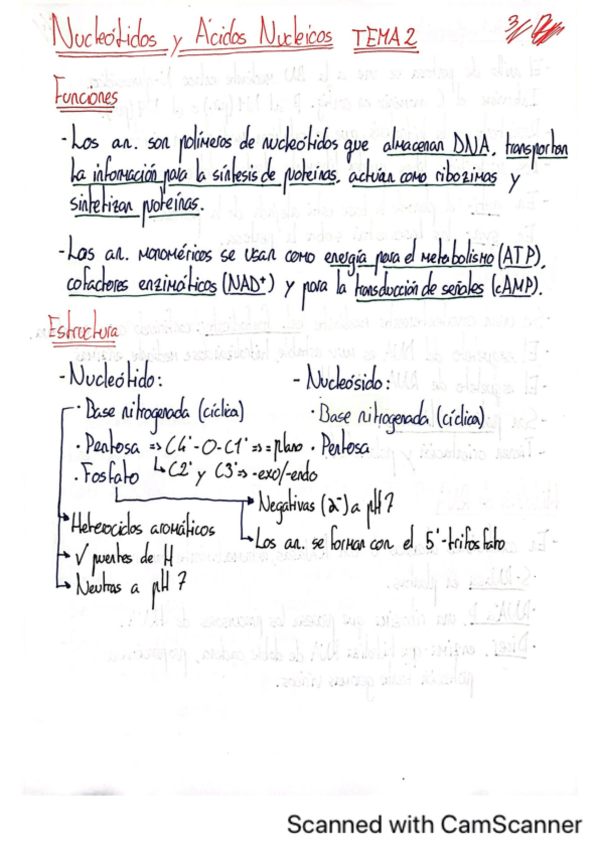 Nucleótidos y Ácidos Nucleicos TEMA 2
Funciones
- Los an. son polímeros de nucleótidos que almacenan DNA, transportan
la información para la síntesis de proteínas, actúan como ribozimas y
sintetizan proteínas.
- Los an. monoméricos se usan como energía para el metabolismo (ATP),
cofactores enzimáticos (NAD+) y para la transducción de señales (cAMP).
Estructura
- Nucleótido:
· Base nitrogenada (cíclica)
· Pentosa => C4'-O-C1' => = plano
↳ C2' y C3' => -exo/-endo
· Fosfato
→ Negativas (2-) a pH 7
→ Los an. se forman con el 5'-trifosfato
→ Heterociclos aromáticos
→ √ puentes de H
→ Neutras a pH 7
- Nucleósido:
· Base nitrogenada (cíclica)
· Pentosa
Scanned with CamScanner